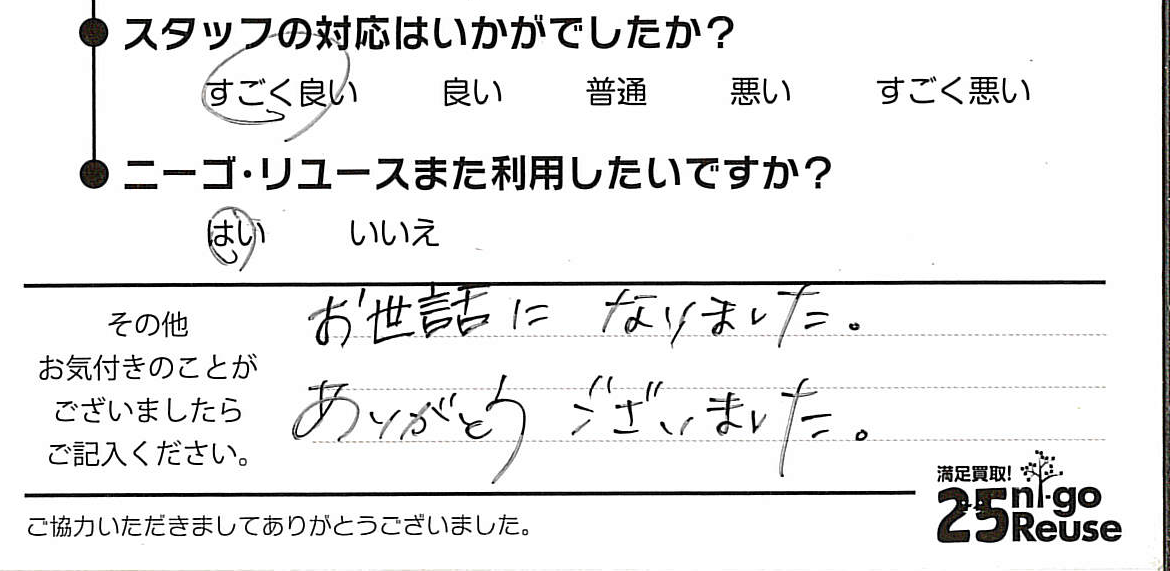 ● スタッフの対応はいかがでしたか？
すごく良い 良い 普通 悪い すごく悪い
● ニーゴ・リユースまた利用したいですか？
はい いいえ
その他
お気付きのことが
ございましたら
ご記入ください。
お世話に なりました。
ありがとう ございました。
満足買取！
25 ni-go
Reuse
ご協力いただきましてありがとうございました。